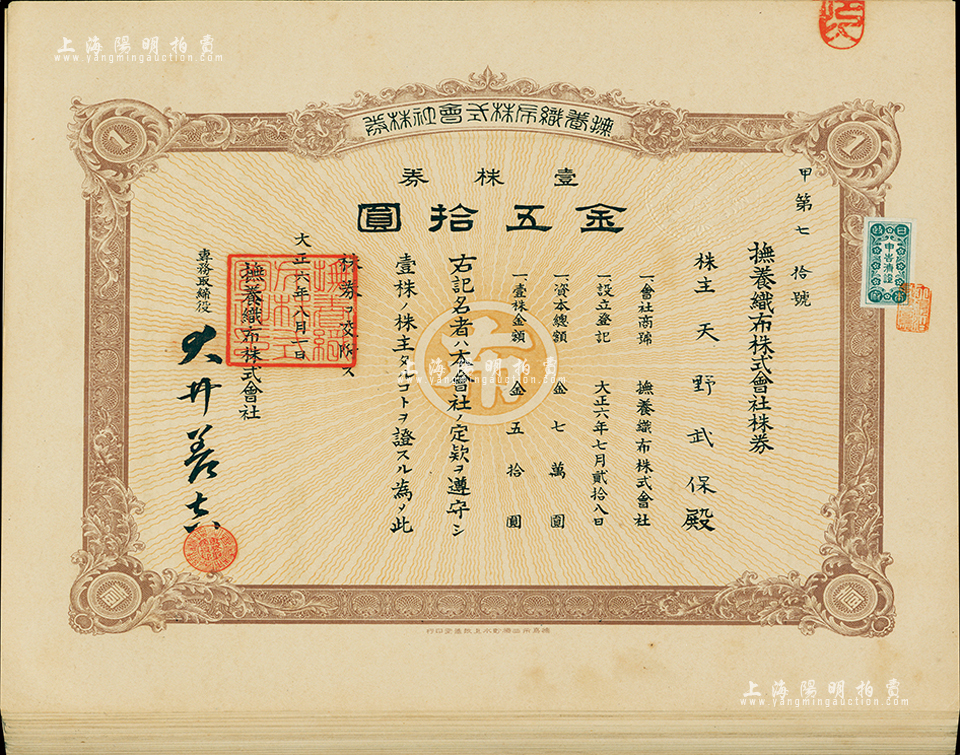 上海陽明拍賣
www.yangmingauction.com
撫養織布株式會社株券
壹株券
金五拾圓
甲第七拾號
撫養織布株式會社株券
株主 天野武保殿
一會社商號 撫養織布株式會社
一設立登記 大正六年七月貳拾八日
一資本總額 金七萬圓
一壹株金額 金五拾圓
右記名者ハ本會社ノ定欵ヲ遵守シ
壹株ノ株主タルコトヲ證スル為メ此
株券ヲ交附ス
大正六年八月一日
撫養織布株式會社
專務取締役
上海陽明拍賣
www.yangmingauction.com
上海陽明拍賣
www.yangmingauction.com